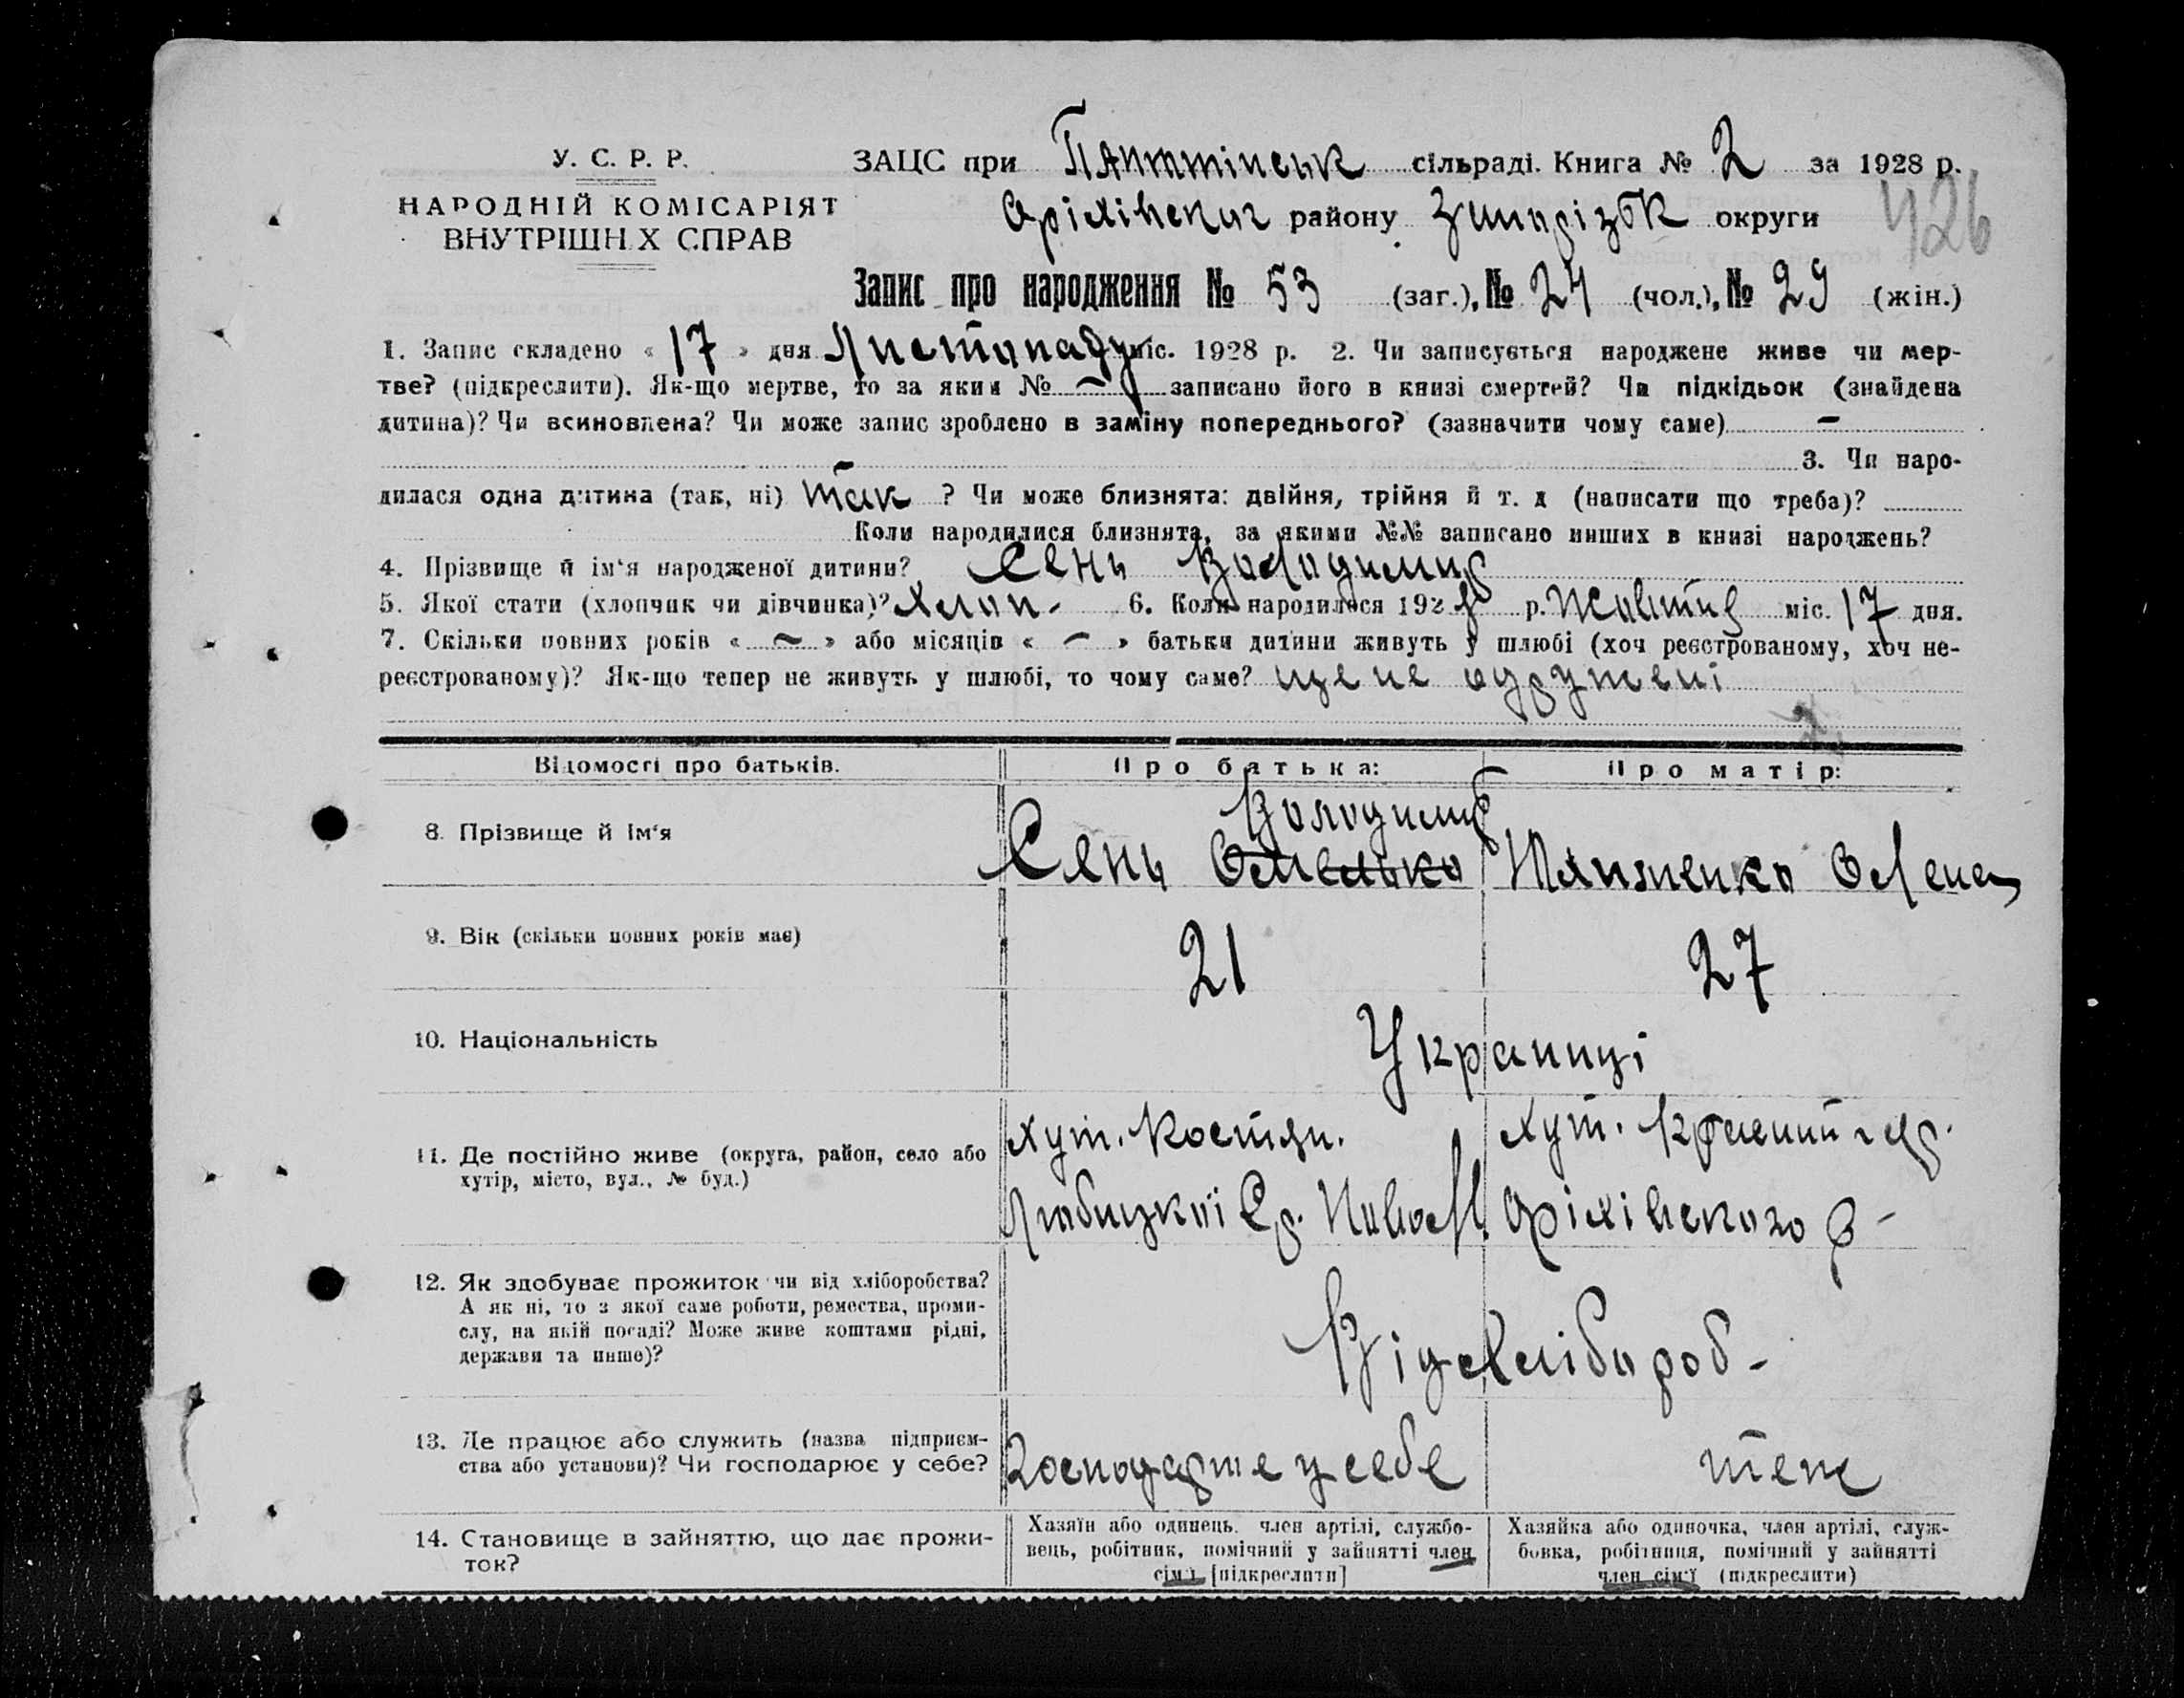 У. С. Р. Р.
НАРОДНІЙ КОМІСАРІЯТ
ВНУТРІШН Х СПРАВ
ЗАЦС при сільраді. Книга № 2 за 1928 р.
Оріхівског району Запорізьк округи
426
Запис про народження № 53 (заг.), № 24 (чол.), № 29 (жін.)
1. Запис складено « 17 » дня Листопаду міс. 1928 р. 2. Чи записується народжене живе чи мер-
тве? (підкреслити). Як-що мертве, то за яким № — записано його в книзі смертей? Чи підкідьок (знайдена
дитина)? Чи всиновлена? Чи може запис зроблено в заміну попереднього? (зазначити чому саме) —
3. Чи наро-
дилася одна дитина (так, ні) так ? Чи може близнята: двійня, трійня й т. д (написати що треба)?
Коли народилися близнята, за якими №№ записано инших в книзі народжень?
4. Прізвище й ім‘я народженої дитини? Сень Володимир
5. Якої стати (хлопчик чи дівчинка)? Хлоп- 6. Коли народилася 1928 р. Жовтня міс. 17 дня.
7. Скільки повних років « — » або місяців « — » батьки дитини живуть у шлюбі (хоч реєстрованому, хоч не-
реєстрованому)? Як-що тепер не живуть у шлюбі, то чому саме? ще не одружені
Відомості про батьків.
Про батька:
Про матір:
8. Прізвище й ім‘я
Володимир
Сень Омелько
Олена
9. Вік (скільки повних років має)
21
27
10. Національність
Украинці
11. Де постійно живе (округа, район, село або
хутір, місто, вул., № буд.)
хут. Костян.
Любицкої Ср.
хут.
Оріхівского р-
12. Як здобуває прожиток чи від хліборобства?
А як ні, то з якої саме роботи, ремества, проми-
слу, на якій посаді? Може живе коштами рідні,
держави та инше)?
Від хлібороб-
13. Де працює або служить (назва підприєм-
ства або установи)? Чи господарює у себе?
у себе
теж
14. Становище в зайняттю, що дає прожи-
ток?
Хазяїн або одинець, член артілі, службо-
вець, робітник, помічний у зайнятті член
сім‘ї [підкреслити]
Хазяйка або одиночка, член артілі, служ-
бовка, робітниця, помічний у зайнятті
член сім‘ї (підкреслити)